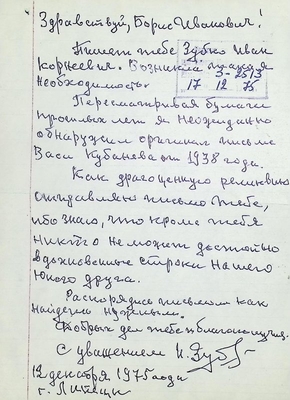 Здравствуй, Борис Иванович!
Пишет тебе Зубко Иван
Корнеевич. Возникла такая
необходимость.
3-2513
17 12 75
Пересматривая бумаги
прошлых лет я неожиданно
обнаружил оригинал письма
Васи Кубанева от 1938 года.
Как драгоценную реликвию
отправляю письмо тебе,
ибо знаю, что кроме тебя
никто не может достойно
вдохновенные строки нашего
юного друга.
Распорядись письмом как
найдешь нужным.
Добрых дел тебе и благополучия.
С уважением И. Зуб
12 декабря 1975 года
г. Липецк